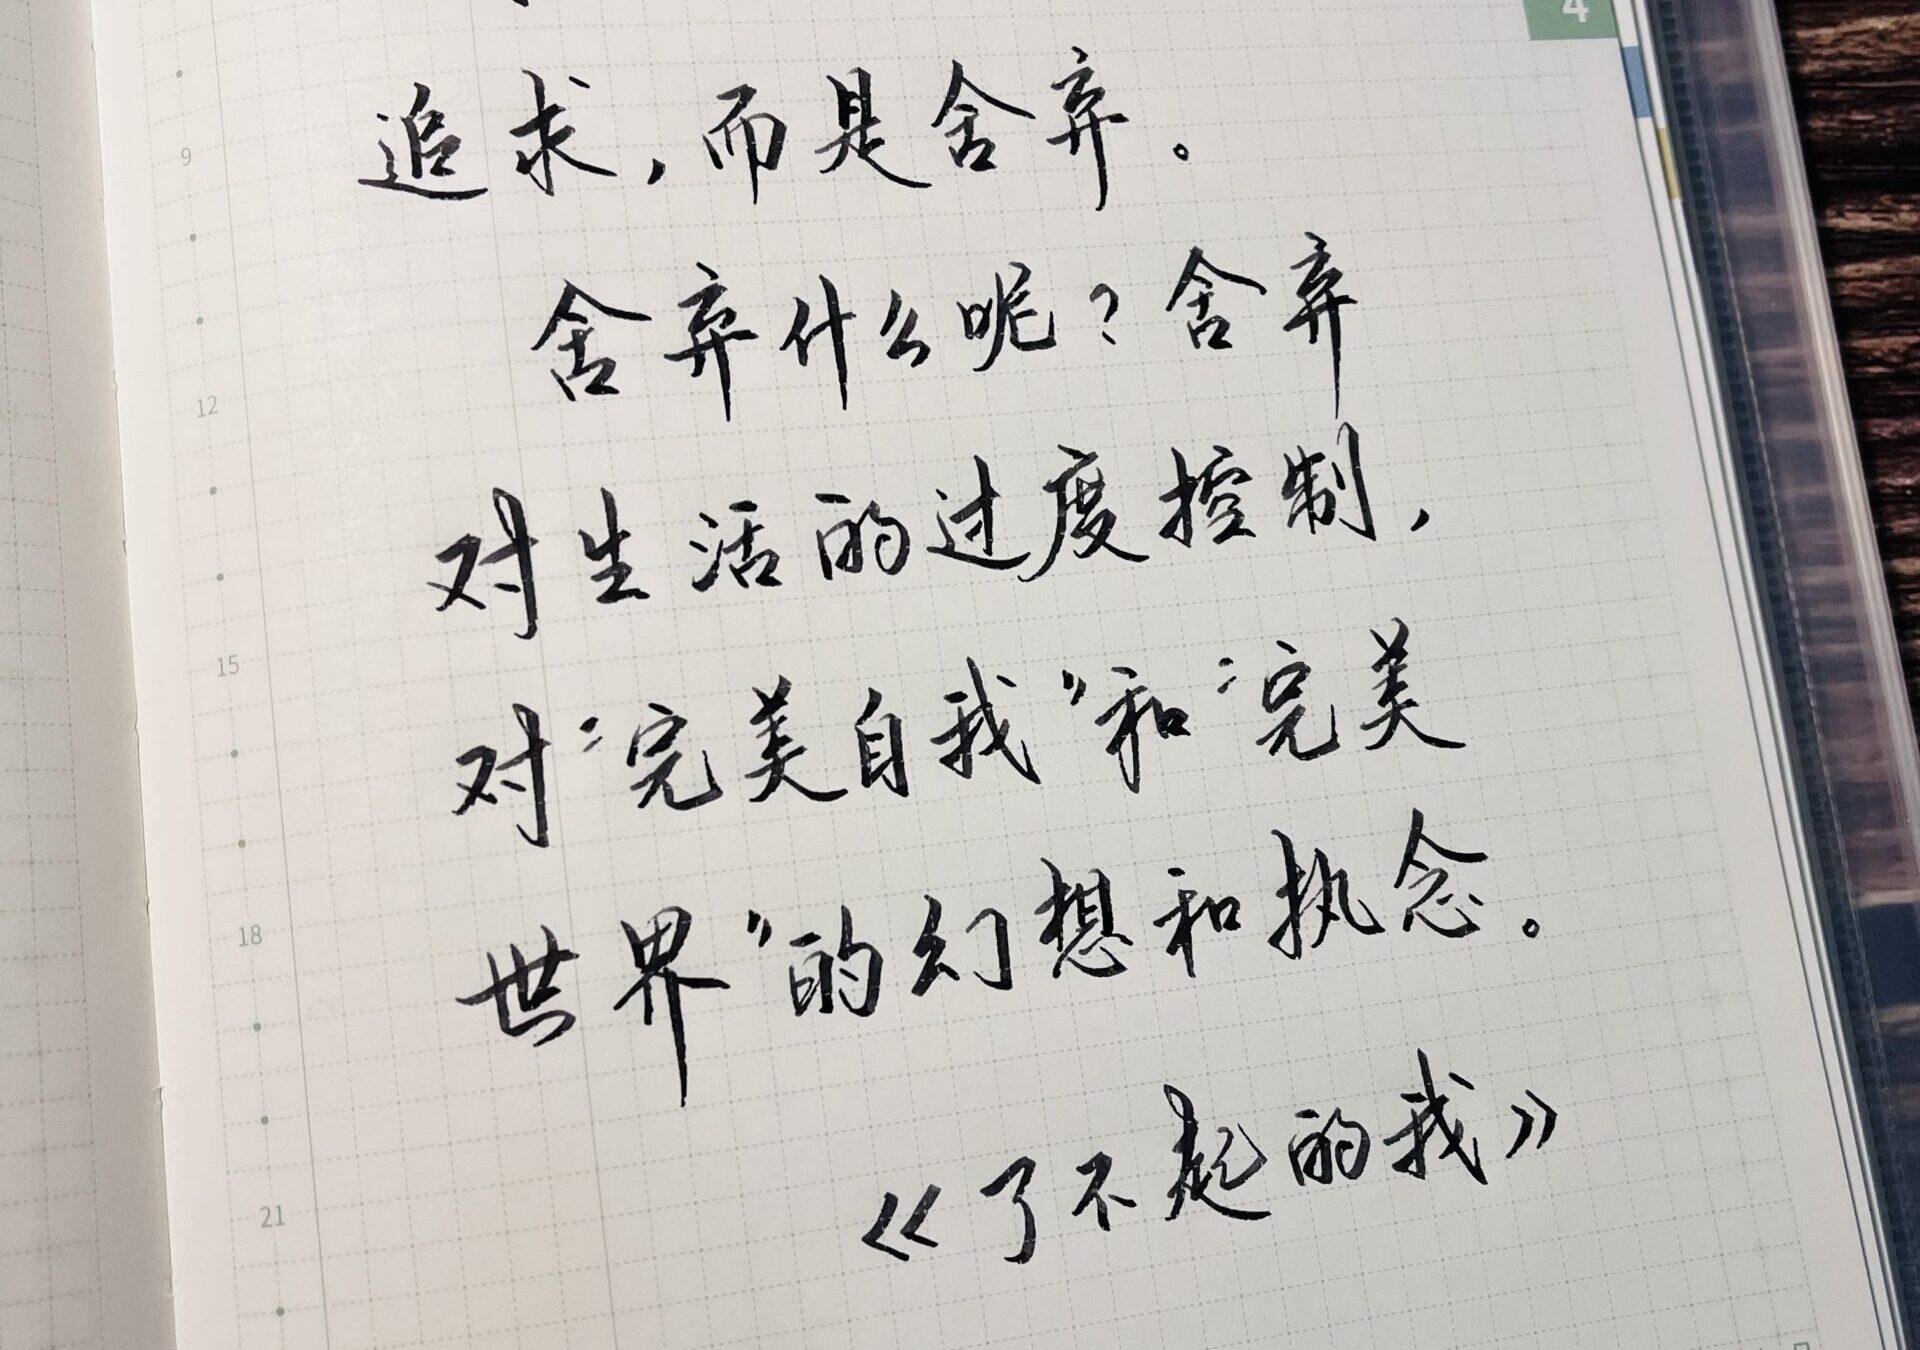 4
追求，而是舍弃。
舍弃什么呢？舍弃
对生活的过度控制，
对“完美自我”和“完美
世界”的幻想和执念。
《了不起的我》
9
12
15
18
21